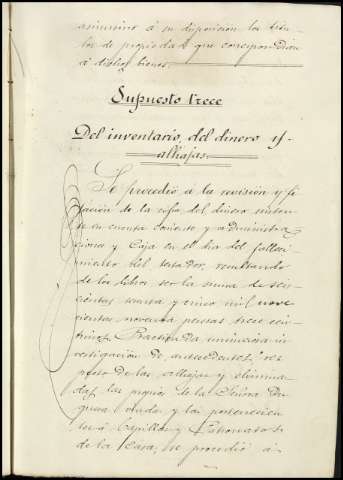 asimismo á su disposición los títu-
los de propiedad que correspondían
á dichos bienes.
Supuesto trece
Del inventario, del dinero y
alhajas.
Se procedió a la revisión y fi
jación de la cifra del dinero existen
te en cuenta corriente y administra
ciones y Caja en el día del falleci-
miento del testador, resultando
de los libros ser la suma de seis-
cientas cuarenta y cinco mil nove
cientas noventa pesetas trece cén-
timos. Practicada minuciosa in
vestigación de antecedentes, res
pecto de las alhajas y elimina
das las propias de la Señora Du
quesa viuda y las pertenecien
tes á Capillas y Patronatos
de la Casa, se procedió á